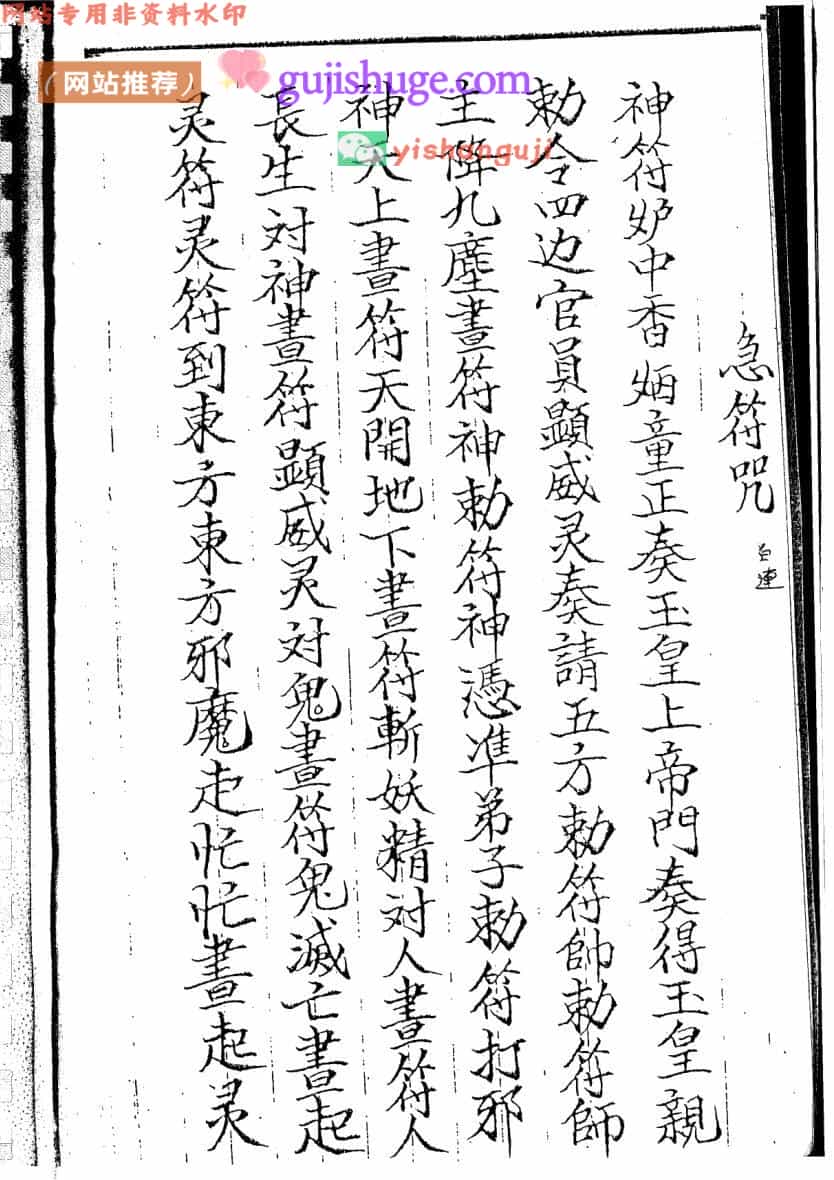 网站专用非资料水印
（网站推荐）
gujishuge.com
yishanguji
急符咒
神符炉中香烟童正奏玉皇上帝門奏得玉皇親
勅令四边官員顯威灵奏請五方勅符帥勅符師
主降九塵畫符神勅符神憑准弟子勅符打邪
神天上畫符天開地下畫符斬妖精对人畫符人
長生対神畫符顯威灵対鬼畫符鬼滅亡畫起
灵符灵符到東方東方邪魔走忙忙畫起灵